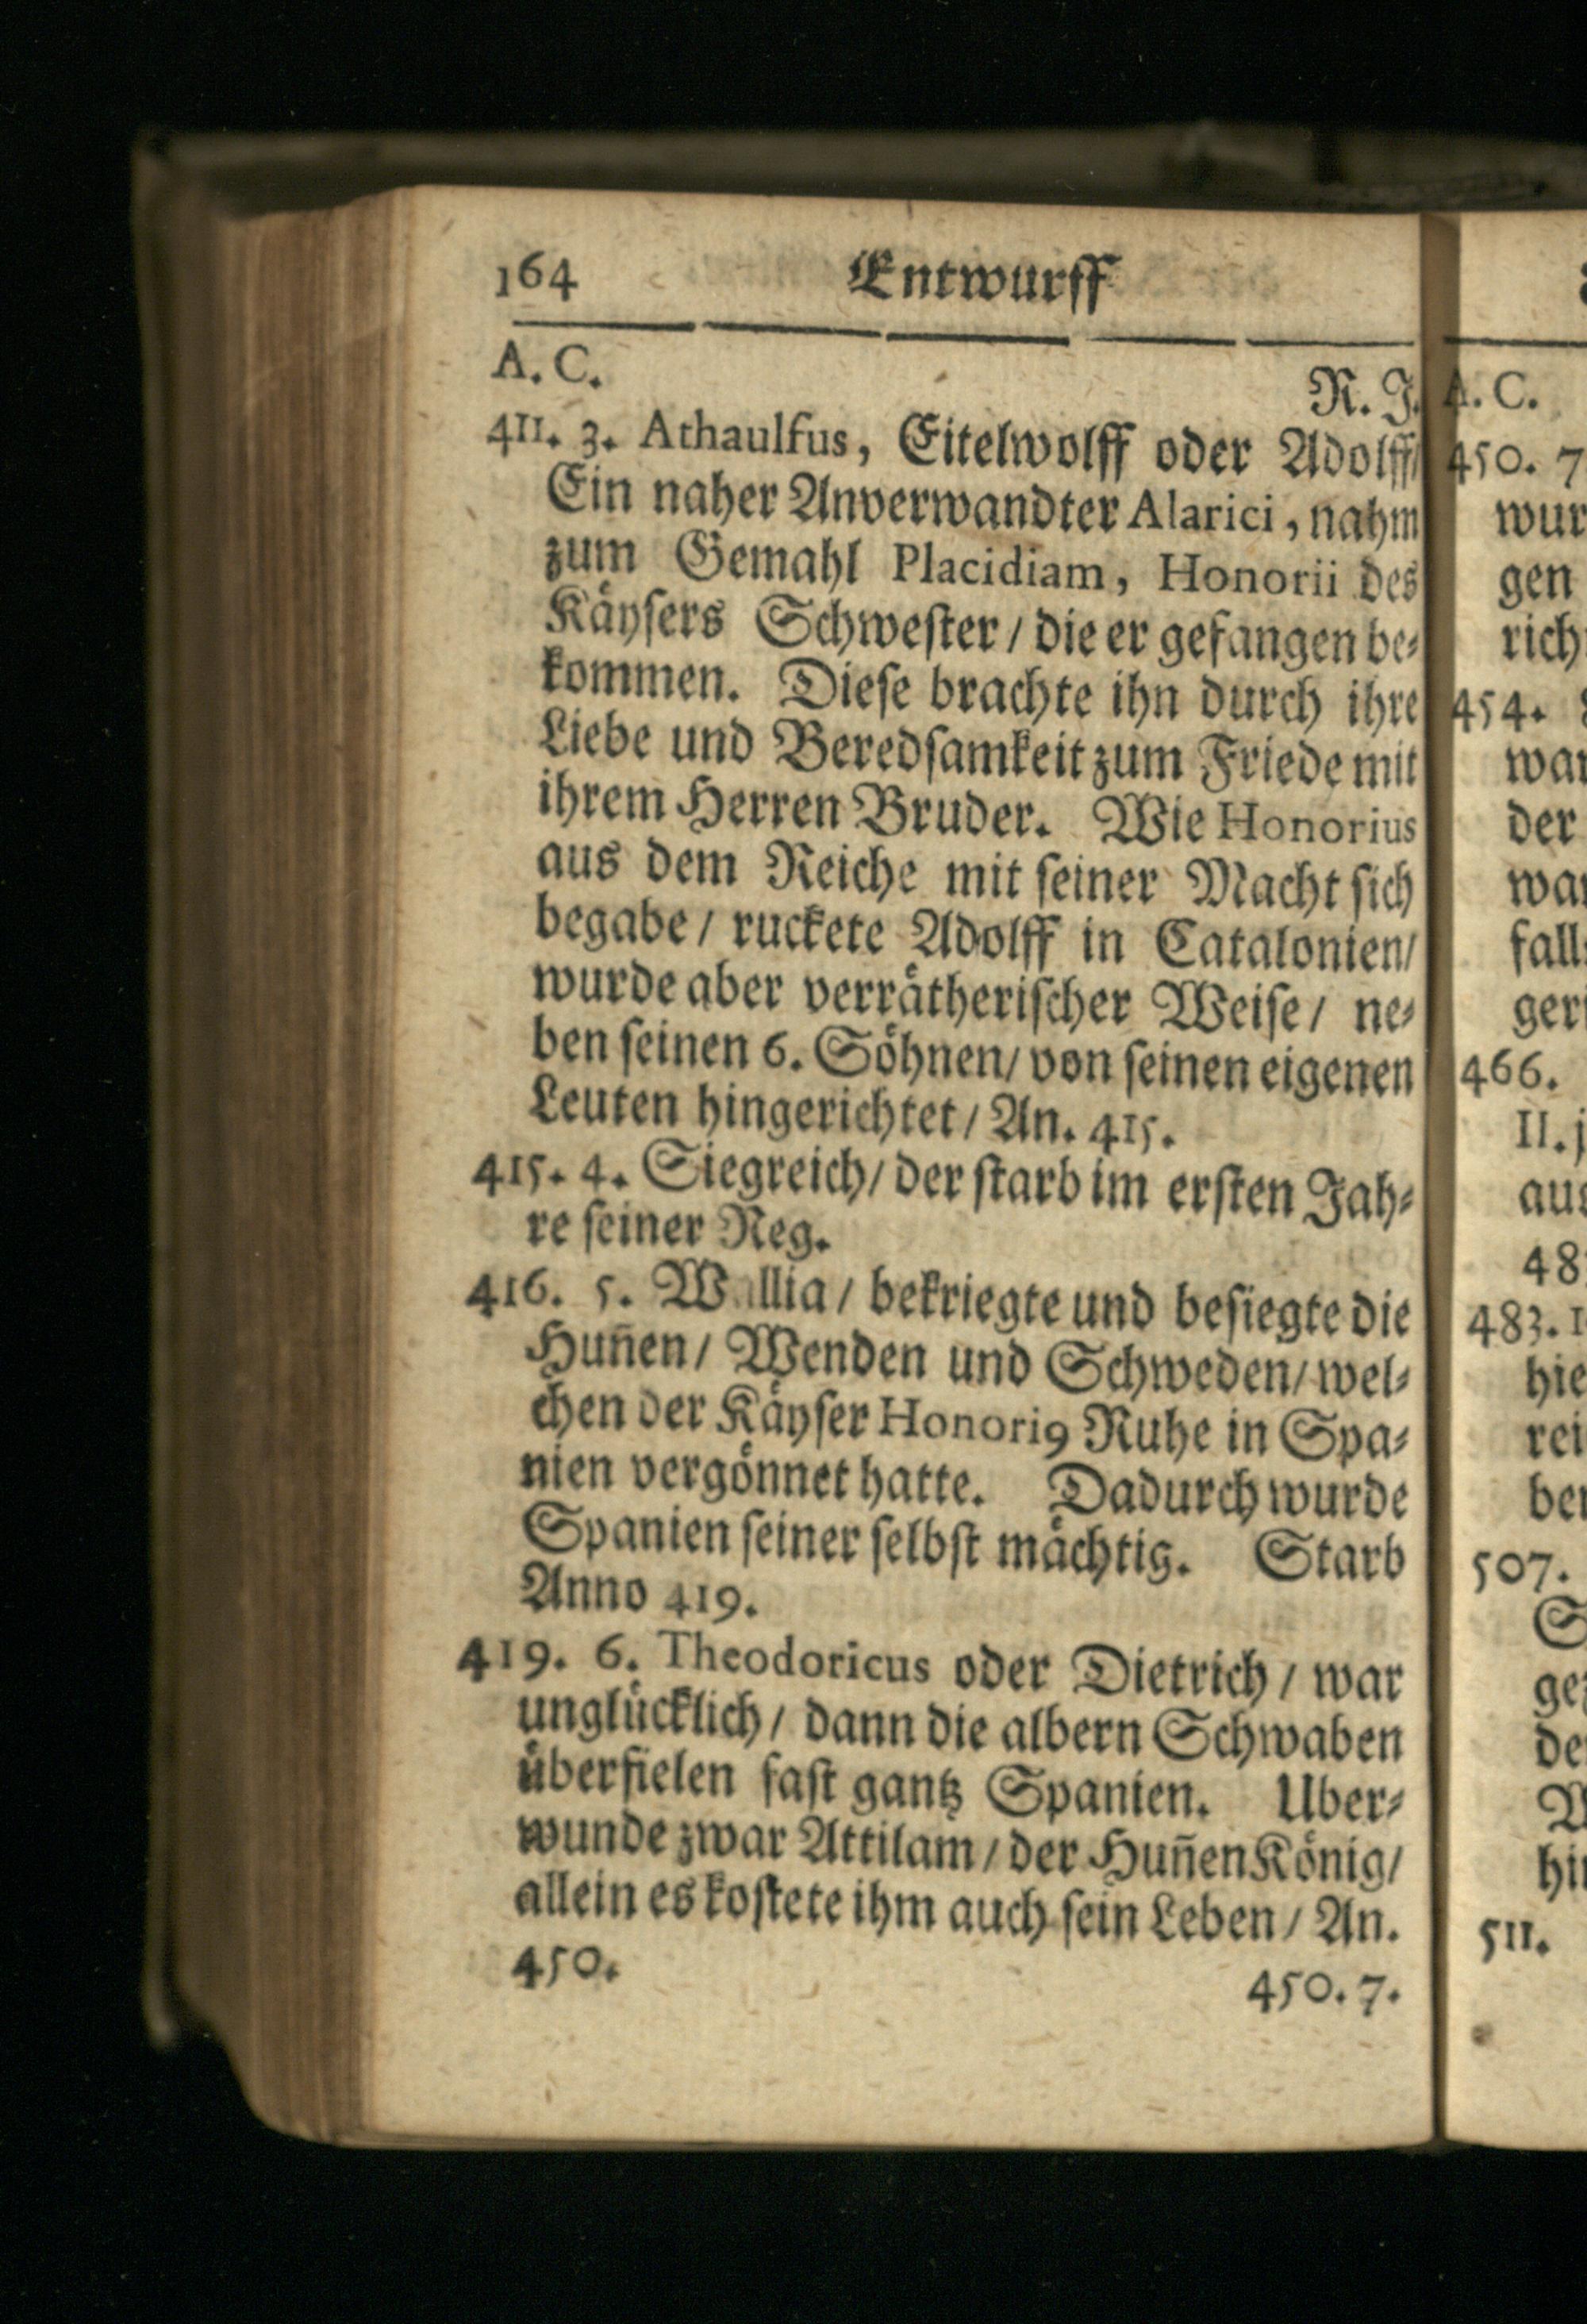 164 Entwurff
A. C.
R. J.
411. 3. Athaulfus, Eitelwolff oder Adolff/
Ein naher Anverwandter Alarici, nahm
zum Gemahl Placidiam, Honorii des
Käyſers Schweſter / die er gefangen be⸗
kommen. Dieſe brachte ihn durch ihre
Liebe und Beredſamkeit zum Friede mit
ihrem Herren Bruder. Wie Honorius
aus dem Reiche mit ſeiner Macht ſich
begabe / ruckete Adolff in Catalonien/
wurde aber verrätheriſcher Weiſe / ne⸗
ben ſeinen 6. Söhnen/ von ſeinen eigenen
Leuten hingerichtet / An. 415.
415. 4. Siegreich/ der ſtarb im erſten Jah⸗
re ſeiner Reg.
416. 5. Wallia / bekriegte und beſiegte die
Huñen / Wenden und Schweden/ wel⸗
chen der Käyſer Honori9 Ruhe in Spa⸗
nien vergönnet hatte. Dadurch wurde
Spanien ſeiner ſelbſt mächtig. Starb
Anno 419.
419. 6. Theodoricus oder Dietrich / war
unglücklich / dann die albern Schwaben
überfielen faſt gantz Spanien. Uber⸗
wunde zwar Attilam / der Huñen König/
allein es koſtete ihm auch ſein Leben / An.
450.
450. 7.
A. C.
450. 7
wur
gen
rich
454.
war
der
war
fall
ger
466.
II. j
aus
48
483. 1
hie
rei
ber
507.
S
ge
de
W
hi
511.